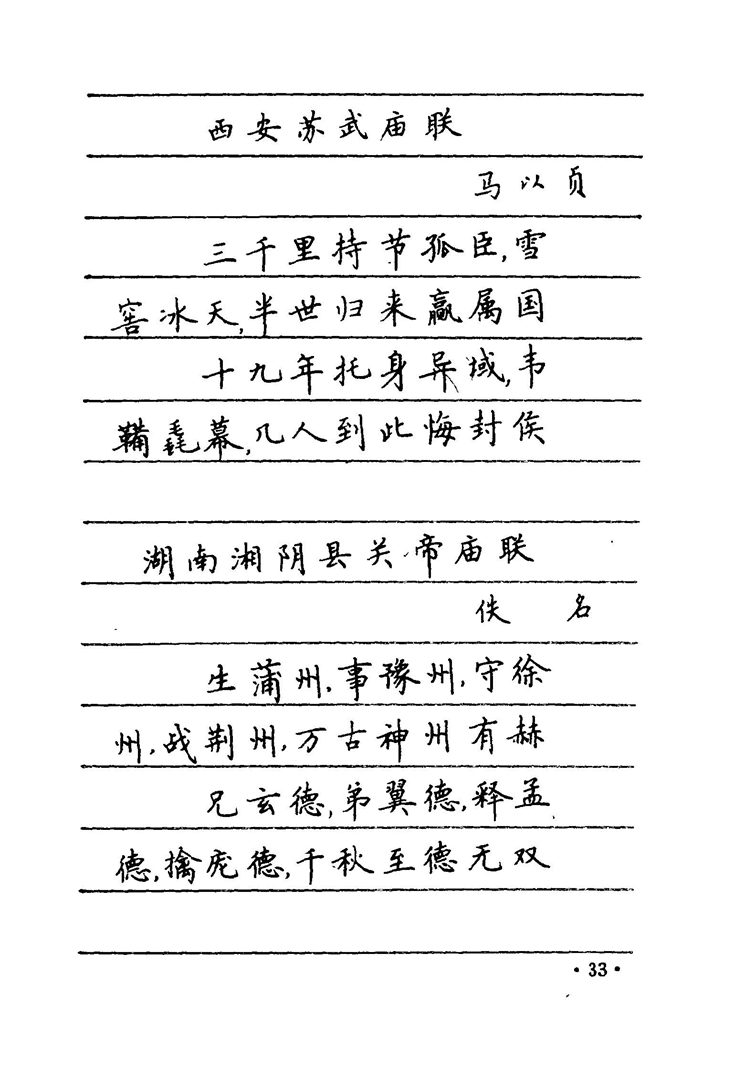 西安苏武庙联
马以贞
三千里持节孤臣,雪
窖冰天,半世归来赢属国
十九年托身异域,韦
鞲毳幕,几人到此悔封侯
湖南湘阴县关帝庙联
佚 名
生蒲州,事豫州,守徐
州,战荆州,万古神州有赫
兄玄德,弟翼德,释孟
德,擒庞德,千秋至德无双
·33·